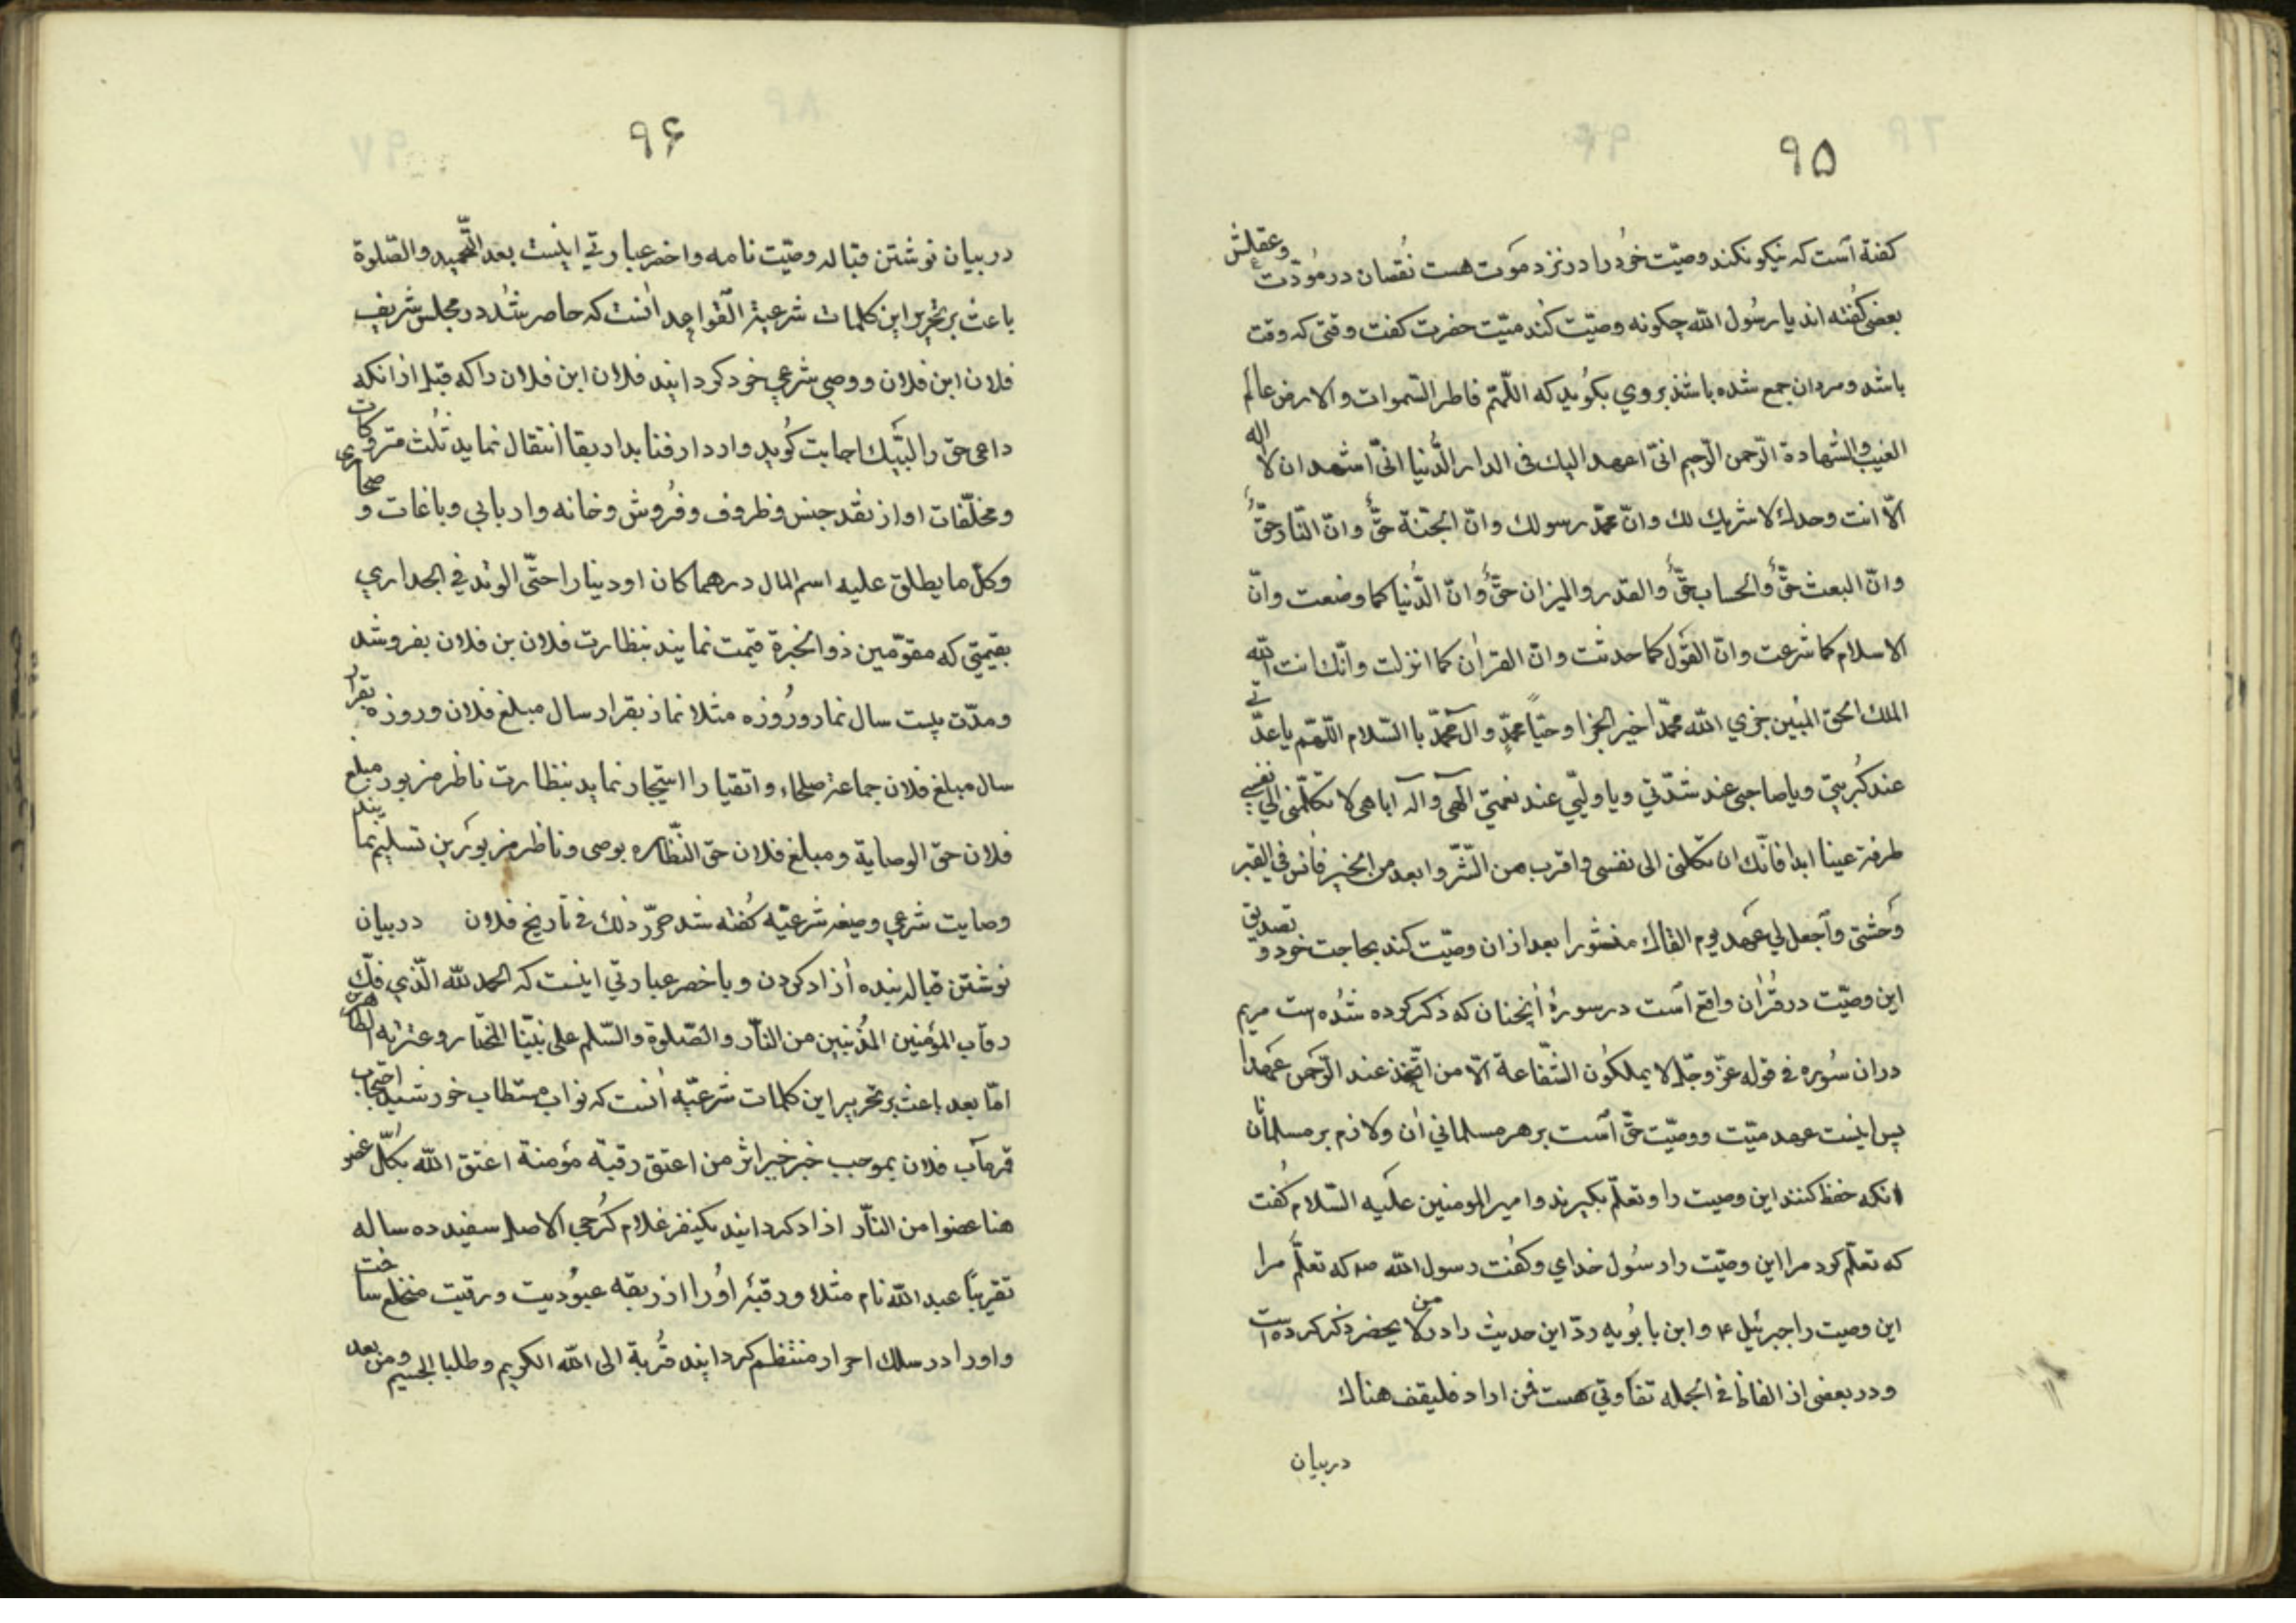 ۹۵
کفتة است که نیکو نکند وصیّت خود را در نزد موت هست نقصان در مودّت وعقلش
بعضی کفته اند یا رسول الله چکونه وصیّت کند میّت حضرت کفت وقتی که وقت
باشد ومردان جمع شده باشند بروی بکوید که اللّهمّ فاطر السّموات والارض عالم
الغیب والشهادة الرّحمن الرّحیم انّی اعهد الیك فی الدار الدّنیا انّی اشهد ان لا اله
الّا انت وحدك لا شریك لك وانّ محمّد رسولك وانّ الجنّة حقّ وانّ النّار حقّ
وانّ البعث حقّ والحساب حقّ والقدر والمیزان حقّ وانّ الدّنیا کما وضعت وانّ
الاسلام کما شرعت وانّ القول کما حدثت وانّ القرآن کما انزلت وانّك انت الله
الملك الحق المبین جزي الله محمّدا خیر الجزا وحیّاً محمّدٍ وآل محمّد با السّلام اللّهمّ یا عدّتي
عند کربتي ویا صاحبی عند شدّتي ویا ولیّي عند نعمتي الهی واله آبائی لا تکلنی الي نفسي
طرفة عینا ابدا فانّك ان تکلنی الی نفسی واقرب من الشّرّ وابعد من الخیر فانس في القبر
وحشتی واجعل لي عهد یوم القاك منشورا بعد ازان وصیّت کند بحاجت خود و تصدیق
این وصیّت در قرآن واقع است در سورهٔ آنچنان که ذکر کرده شده است مریم
دران سوره في قوله عزّ وجلّ لا یملکون الشّفاعة الّا من اتّخذ عند الرّحمن عهدا
پس اینست عهد میّت ووصیّت حقّ است بر هر مسلماني آن ولازم بر مسلمانان
انکه حفظ کنند این وصیت را وتعلّم بکیرند وامیر المومنین علیه السّلام کفت
که تعلّم کرد مرا این وصیّت را رسول خدای وکفت رسول الله صه که تعلّم مرا
این وصیت را جبرئیل ۴ وابن بابویه ردّ این حدیث را در من لا یحضر ذکر کرده است
ودر بعضی از الفاظ في الجمله تفاوتي هست فمن اراد فلیقف هناك
دربیان
۹۶
دربیان نوشتن قباله وصیّت نامه واخصر عبارتي اینست بعد التّحمید والصّلوة
باعث بر تحریر این کلمات شرعیة القواعد آنست که حاضر شد در مجلس شریف
فلان ابن فلان ووصي شرعي خود کردانید فلان ابن فلان را که قبل از انکه
داعی حق را لبّیك اجابت کوید واز دار فنا بدار بقا انتقال نماید ثلث متروکات
ومخلّفات او از نقد جنس وظروف وفروش وخانه وار بابي وباغات و صحاری
وکلّ ما یطلق علیه اسم المال درهما کان او دینارا حتّی الوتد في الجداري
بقیمتي که مقوّمین ذو الخبرة قیمت نمایند بنظارت فلان بن فلان بفروشد
ومدّت بیست سال نماز وروزه مثلا نماز بقرار سال مبلغ فلان وروزه بقرار
سال مبلغ فلان جماعة صلحاء واتقیا را استیجار نماید بنظارت ناظر مزبور مبلغ
فلان حق الوصایة ومبلغ فلان حق النّظاره بوصی وناظر مزبورین تسلیم نمایند
وصایت شرعي وصیغه شرعیّه کفته شد حرّر ذلك في تاریخ فلان دربیان
نوشتن قباله بنده آزاد کردن وبا خصر عبارتي اینست که الحمد لله الّذي فكّ
رقاب المؤمنین المذنبین من النّار والصّلوة والسّلم علی نبیّنا المختار وعترته الطاهرین
امّا بعد باعث بر تحریر این کلمات شرعیّه آنست که نواب مستطاب خورشید احتجاب
قمر مآب فلان بموجب خبر خیر اثر من اعتق رقبة مؤمنة اعتق الله بکلّ عضو
هنا عضوا من النّار ازاد کردانید یکنفر غلام کرجي الاصل سفید ده ساله
تقریبًا عبد الله نام مثلا ورقبهٔ اورا از ربقه عبودیت ورقیت منخلع ساخت
واورا در سلك احرار منتظم کردانید قربة الی الله الکریم وطلبا الجسیم ومن بعد